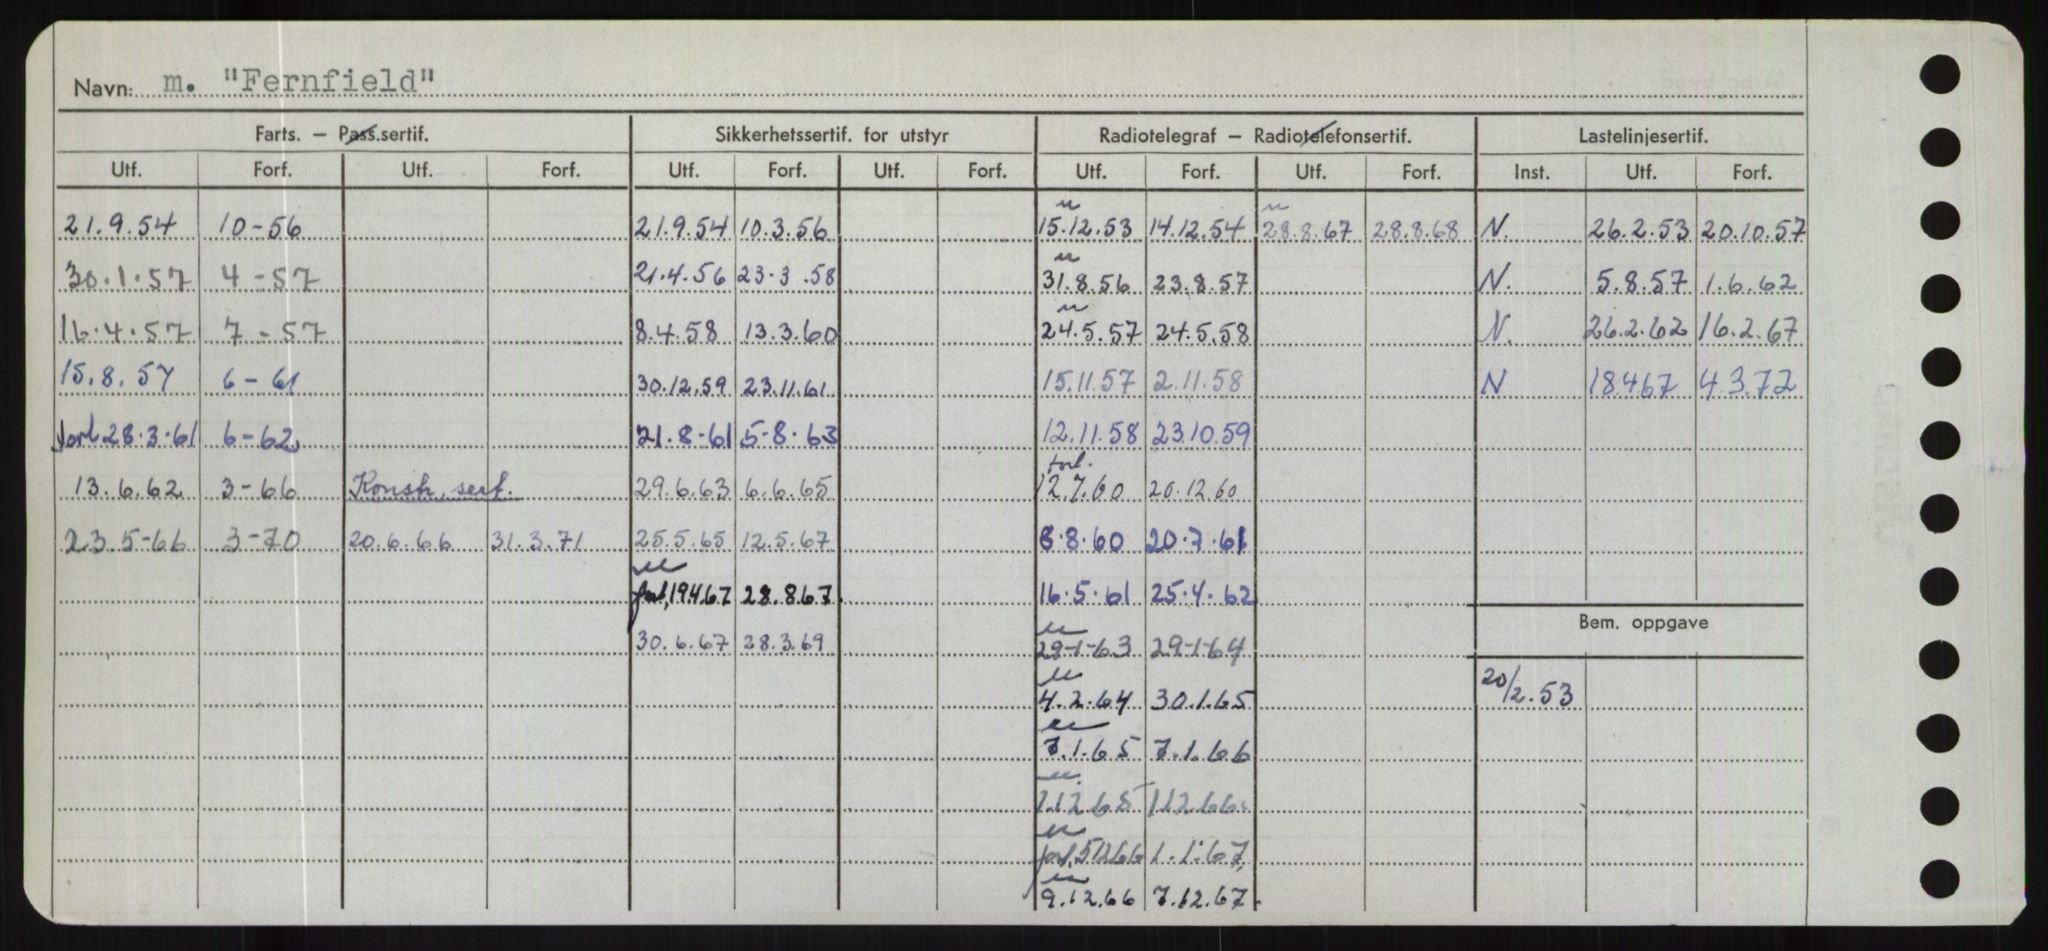 Navn: m. "Fernfield"
Farts. — Pass.sertif. Sikkerhetssertif. for utstyr Radiotelegraf — Radiotelefonsertif. Lastelinjesertif.
Utf. Forf. Utf. Forf. Utf. Forf. Utf. Forf. Utf. Forf. Utf. Forf. Inst. Utf. Forf.
21.9.54 10-56 21.9.54 10.3.56 15.12.53 14.12.54 28.8.67 28.8.68 N. 26.2.53 20.10.57
30.1.57 4-57 21.4.56 23.3.58 31.8.56 23.8.57 N. 5.8.57 1.6.62
16.4.57 7-57 8.4.58 13.3.60 24.5.57 24.5.58 N. 26.2.62 16.2.67
15.8.57 6-61 30.12.59 23.11.61 15.11.57 2.11.58 N 18.467 4.3.72
forl 28.3.61 6-62 21.8-61 5-8.63 12.11.58 23.10.59
forl.
13.6.62 3-66 Konstr. sert. 29.6.63 6.6.65 12.7.60 20.12.60
23.5-66 3-70 20.6.66 31.3.71 25.5.65 12.5.67 8.8.60 20.7.61
forl, 19467 28.867. 16.5.61 25.4.62
Bem. oppgave
30.6.67 28.3.69 29-1-63 29-1-64
20/2.53
4.2.64 30.1.65
7.1.65 7.1.66
1.12.65 1.12.66.
forl, 51266 1.1.67,
9.12.66 7.12.67.